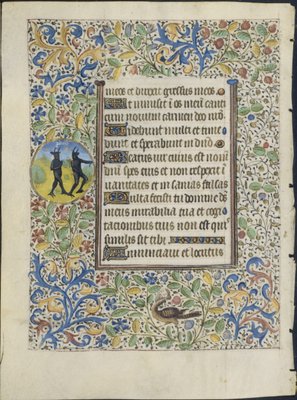 meos et direxit gressus meos
Et inmisit ī os meū canti
cum novum carmen deo nr̄o
Videbunt multi et time
bunt et sperabunt in dn̄o
Beatus vir cuius est nom̄
dn̄i spes eius et non respexit
vanitates et insanias falsas
Multa fecisti tu domine de
meus mirabilia tua et cogi
tacionibus tuis non est qui
similis sit tibi
Annunciavi et locutus